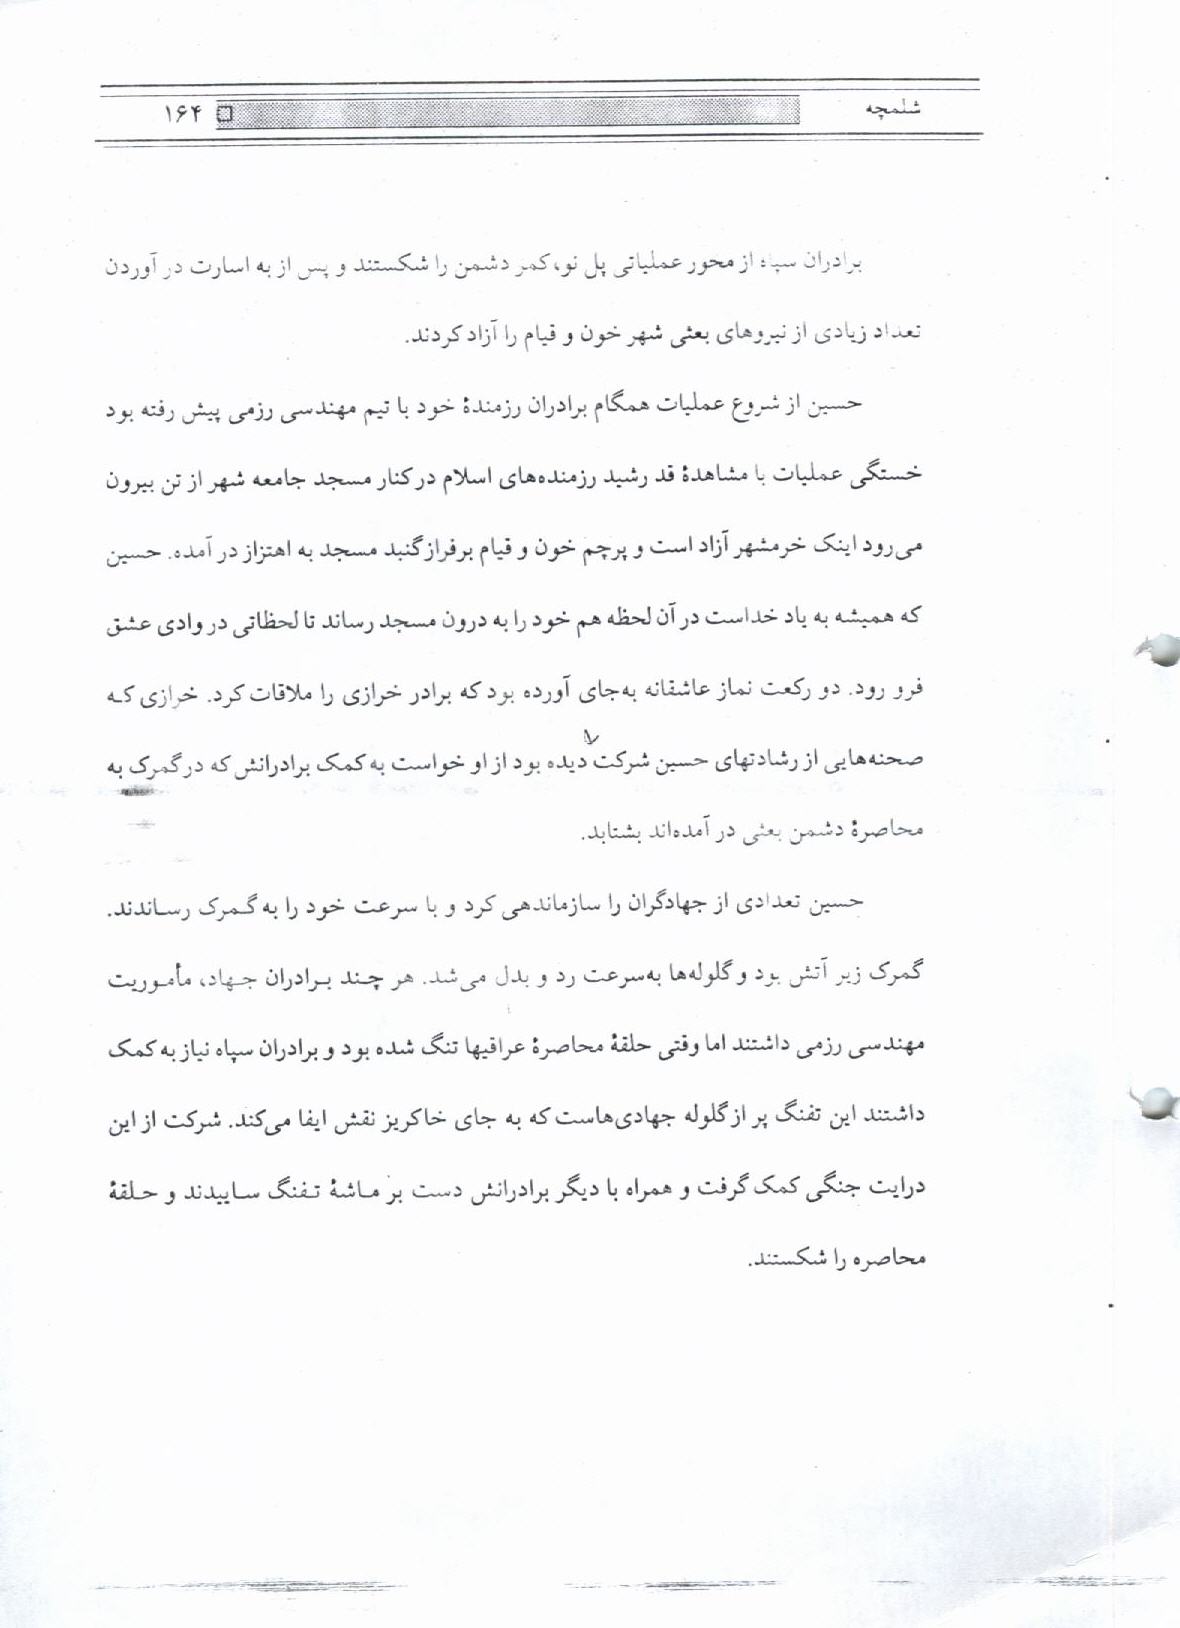 شلمچه ۱۶۴
برادران سپاه از محور عملیاتی پل نو، کمر دشمن را شکستند و پس از به اسارت در آوردن
تعداد زیادی از نیروهای بعثی شهر خون و قیام را آزاد کردند.
حسین از شروع عملیات همگام برادران رزمندۀ خود با تیم مهندسی رزمی پیش رفته بود
خستگی عملیات با مشاهدۀ قد رشید رزمنده‌های اسلام در کنار مسجد جامعه شهر از تن بیرون
می‌رود اینک خرمشهر آزاد است و پرچم خون و قیام برفراز گنبد مسجد به اهتزاز در آمده. حسین
که همیشه به یاد خداست در آن لحظه هم خود را به درون مسجد رساند تا لحظاتی در وادی عشق
فرو رود. دو رکعت نماز عاشقانه به‌جای آورده بود که برادر خرازی را ملاقات کرد. خرازی که
صحنه‌هایی از رشادتهای حسین شرکت دیده بود از او خواست به کمک برادرانش که در گمرک به
محاصرۀ دشمن بعثی در آمده‌اند بشتابد.
حسین تعدادی از جهادگران را سازماندهی کرد و با سرعت خود را به گمرک رساندند.
گمرک زیر آتش بود و گلوله‌ها به‌سرعت رد و بدل می‌شد. هر چند برادران جهاد، مأموریت
مهندسی رزمی داشتند اما وقتی حلقۀ محاصرۀ عراقیها تنگ شده بود و برادران سپاه نیاز به کمک
داشتند این تفنگ پر از گلوله جهادی‌هاست که به جای خاکریز نقش ایفا می‌کند. شرکت از این
درایت جنگی کمک گرفت و همراه با دیگر برادرانش دست بر ماشۀ تفنگ ساییدند و حلقۀ
محاصره را شکستند.